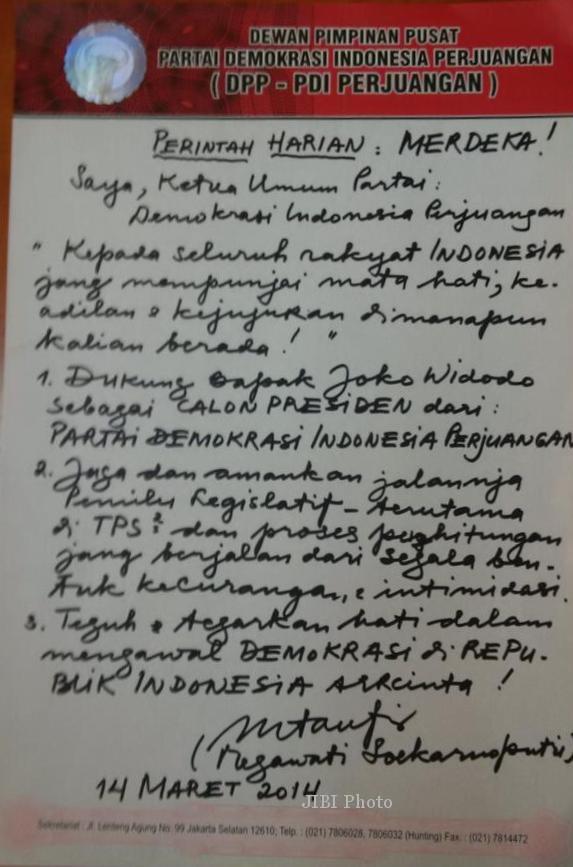 DEWAN PIMPINAN PUSAT
PARTAI DEMOKRASI INDONESIA PERJUANGAN
( DPP - PDI PERJUANGAN )
PERINTAH HARIAN : MERDEKA!
Saya, Ketua Umum Partai :
Demokrasi Indonesia Perjuangan
" Kepada seluruh rakyat INDONESIA
jang mempunjai mata hati, ke-
adilan & kejujuran dimanapun
kalian berada! "
1. Dukung Bapak Joko Widodo
sebagai CALON PRESIDEN dari :
PARTAI DEMOKRASI INDONESIA PERJUANGAN
2. Jaga dan amankan jalannja
Pemilu Legislatif - terutama
di TPS2 dan proses penghitungan
jang berjalan dari segala ben-
tuk kecurangan, & intimidasi.
3. Teguh & tegarkan hati dalam
mengawal DEMOKRASI di REPU-
BLIK INDONESIA tercinta !
(Megawati Soekarnoputri)
14 MARET 2014
JIBI Photo
Sekretariat : Jl. Lenteng Agung No. 99 Jakarta Selatan 12610; Telp. : (021) 7806028, 7806032 (Hunting) Fax. : (021) 7814472